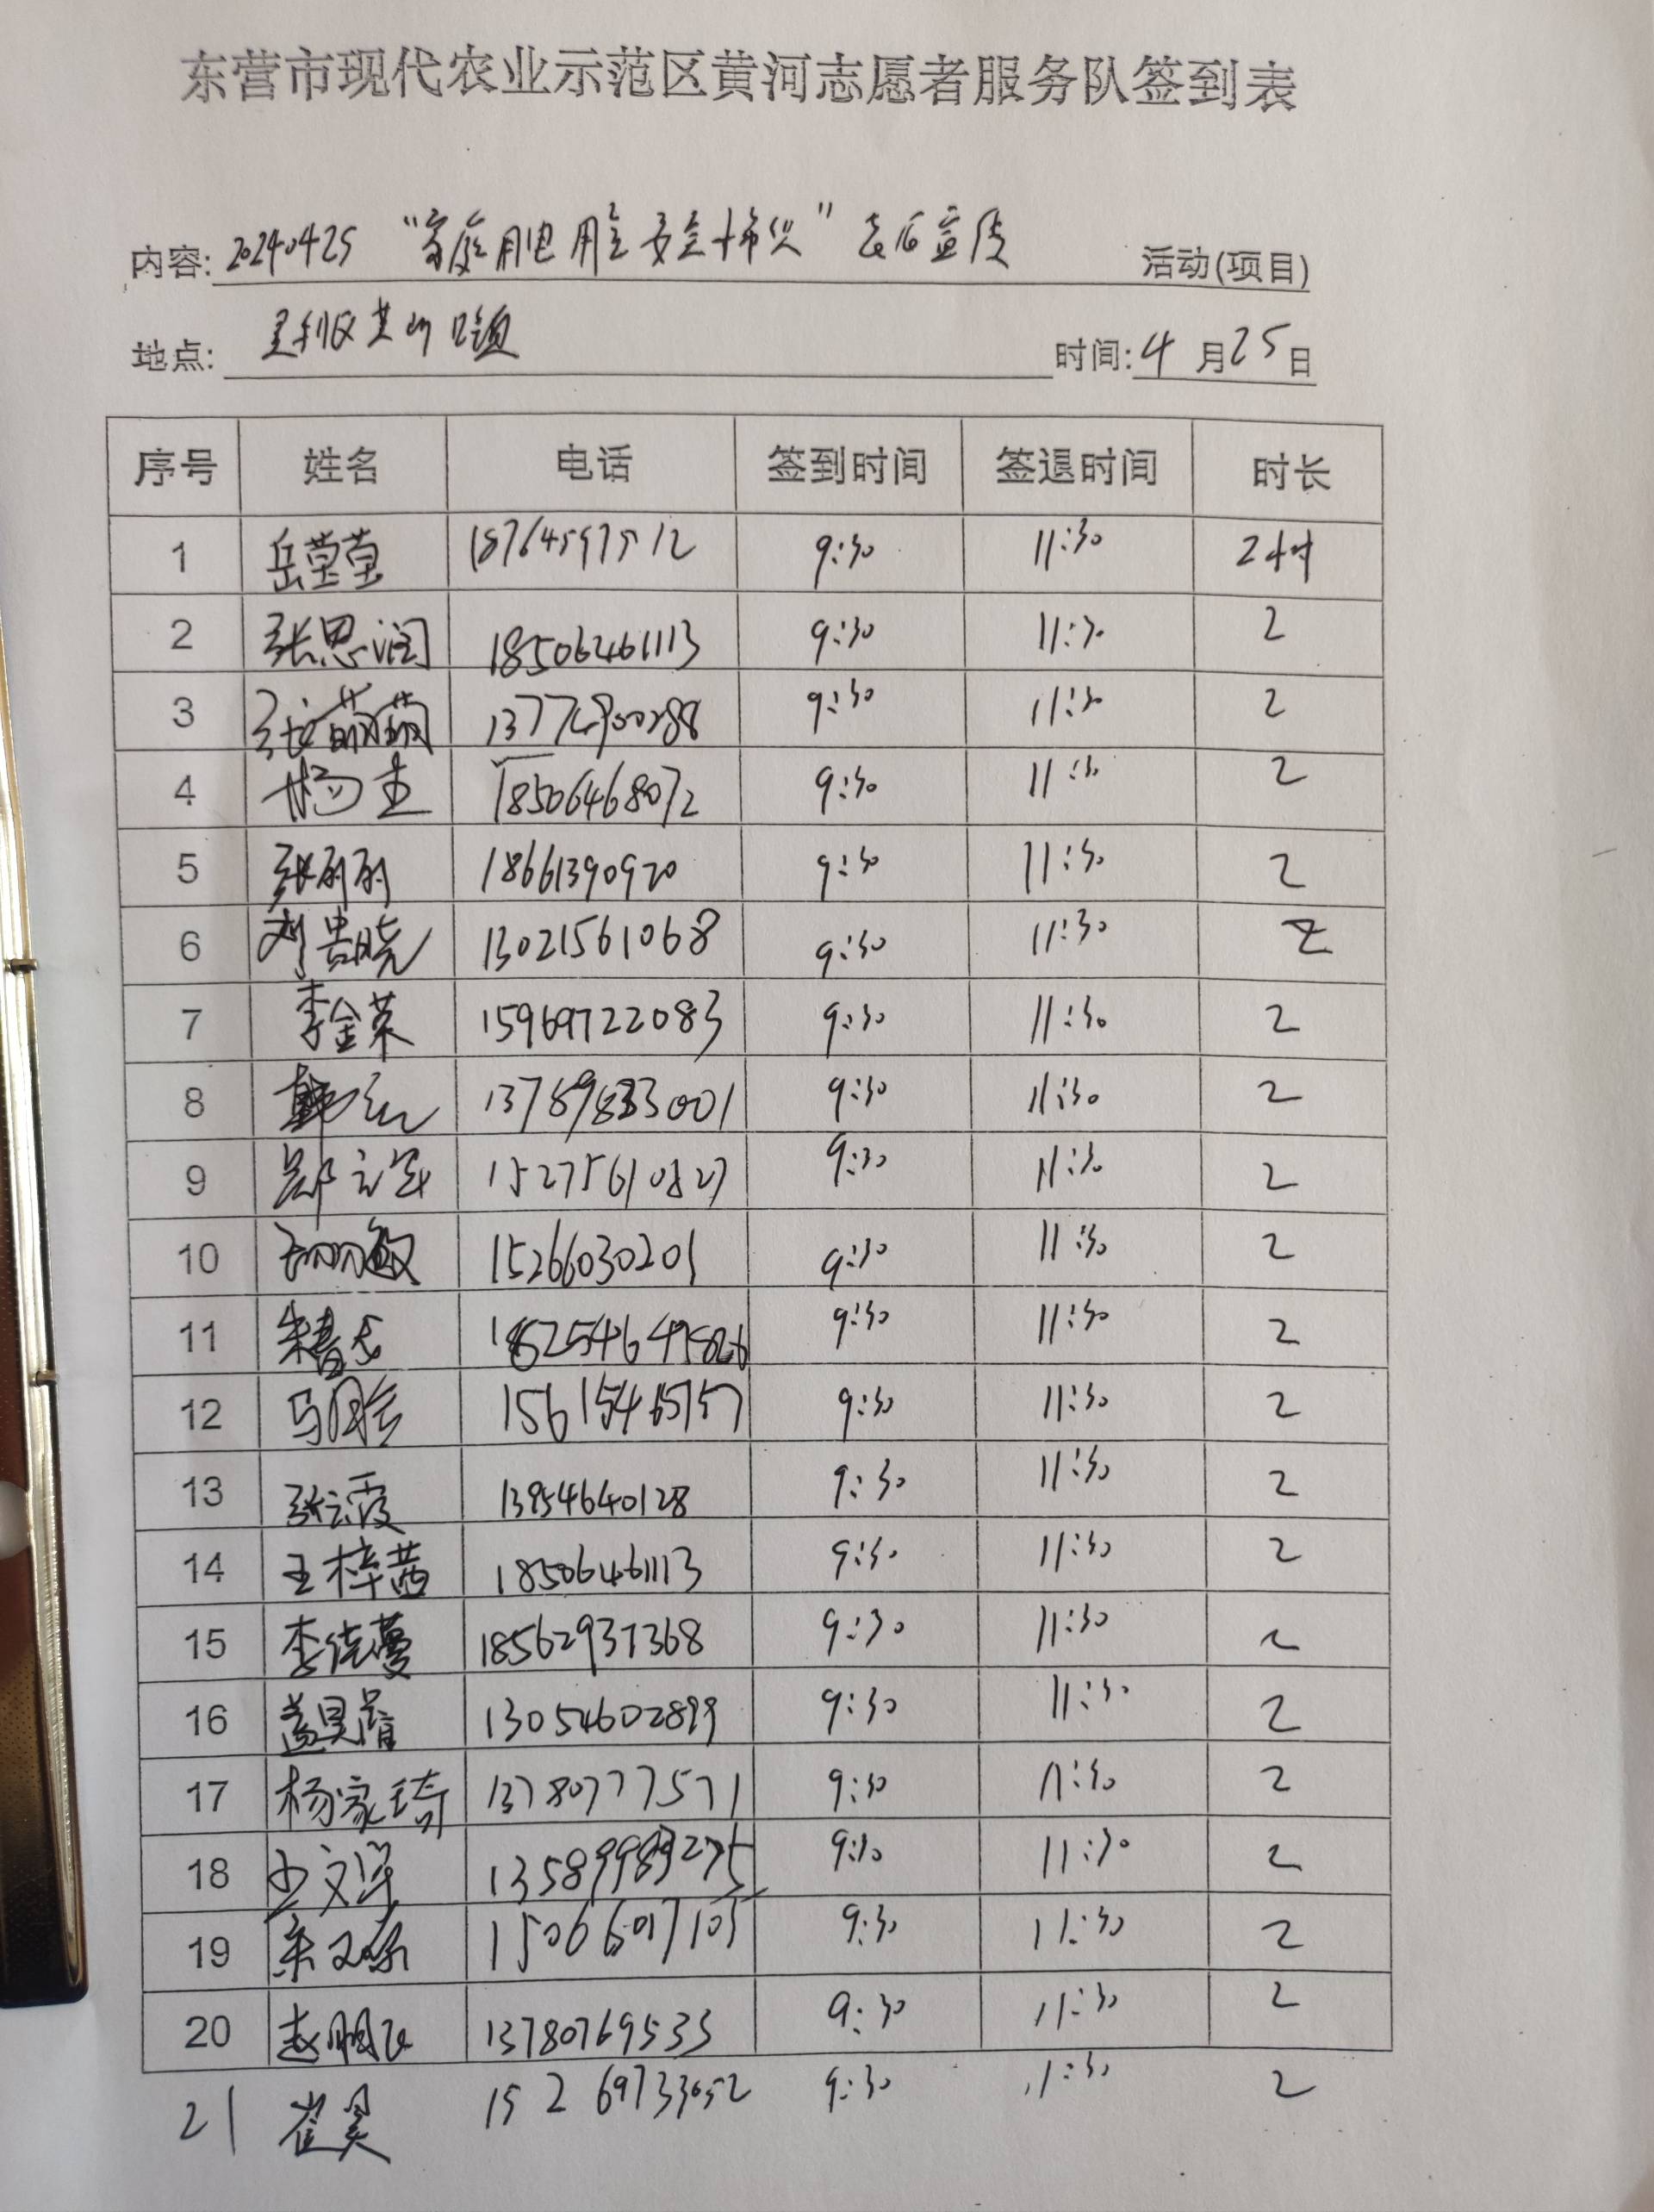 东营市现代农业示范区黄河志愿者服务队签到表
内容: 20240425 “家庭用电用气安全常识” 宣传 活动(项目)
地点: 垦利区黄河口镇 时间: 4 月 25 日
序号 姓名 电话 签到时间 签退时间 时长
1 岳莹莹 18764597512 9:30 11:30 2小时
2 张思润 18506461113 9:30 11:30 2
3 张萌萌 9:30 11:30 2
4 杨 18506468072 9:30 11:30 2
5 张丽丽 18661390920 9:30 11:30 2
6 刘晓 13021561068 9:30 11:30 2
7 李金荣 15969722083 9:30 11:30 2
8 韩红 13789833001 9:30 11:30 2
9 郑 15275610827 9:30 11:30 2
10 敏 15266030201 9:30 11:30 2
11 朱春 9:30 11:30 2
12 马 9:30 11:30 2
13 张云霞 13954640128 9:30 11:30 2
14 王梓茜 18506461113 9:30 11:30 2
15 李佳蔓 18562937368 9:30 11:30 2
16 盖昊 13054602899 9:30 11:30 2
17 杨家琦 13780777571 9:30 11:30 2
18 文泽 9:30 11:30 2
19 9:30 11:30 2
20 赵鹏飞 13780769533 9:30 11:30 2
21 崔昊 15269733052 9:30 11:30 2